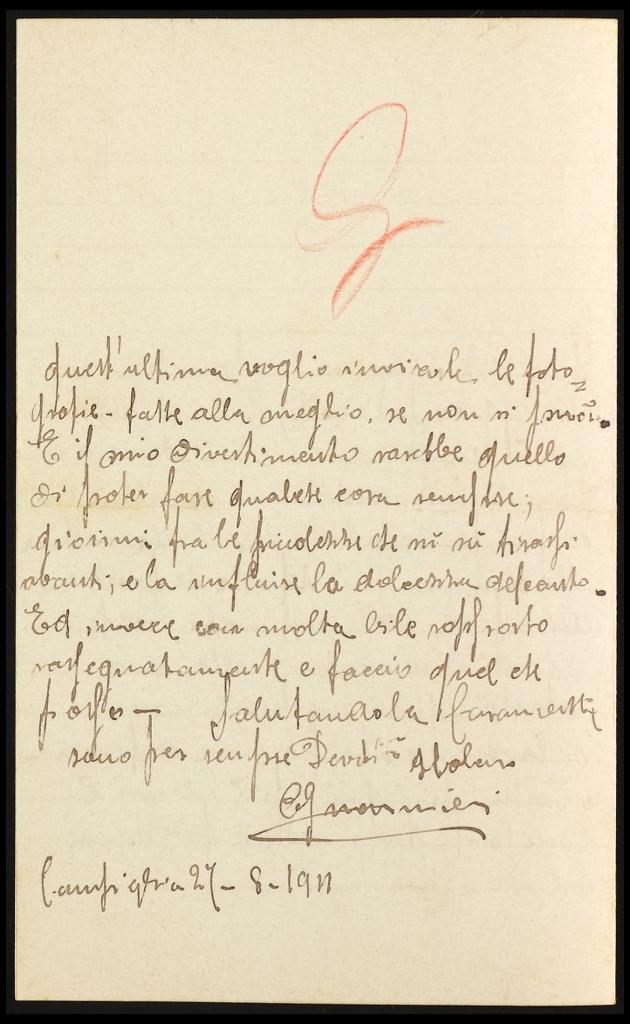 G
quest'ultima voglio inviarle le foto=
grafie - fatte alla meglio, se non si
E il mio divertimento sarebbe quello
di poter fare qualche cosa sempre;
giovani fra le che si si
avanti, e la influire la dolcezza
Ed invece con molta bile sopporto
rassegnatamente e faccio quel che
posso — Salutandola Caramente
sono per sempre
EGuarnieri
Campiglia 27 - 8 - 1911